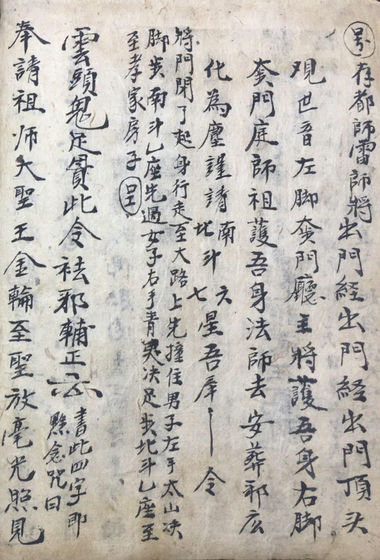 存都師雷師將出門經出門經出門頂头
观世音左脚奔門廳主將護吾身右脚
奔門庭師祖護吾身法師去安葬邪広
化為塵謹請南北斗六七星吾奉令
將門開了起身行走至大路上先撞住男子左手太山决
脚步南斗乙座先遇女子右手青决足步北斗乙座至
至孝家房子
雲頭鬼足貫此令祛邪輔正書此四字即
黙念咒曰
奉請祖师大聖王金輪至聖放毫光照見